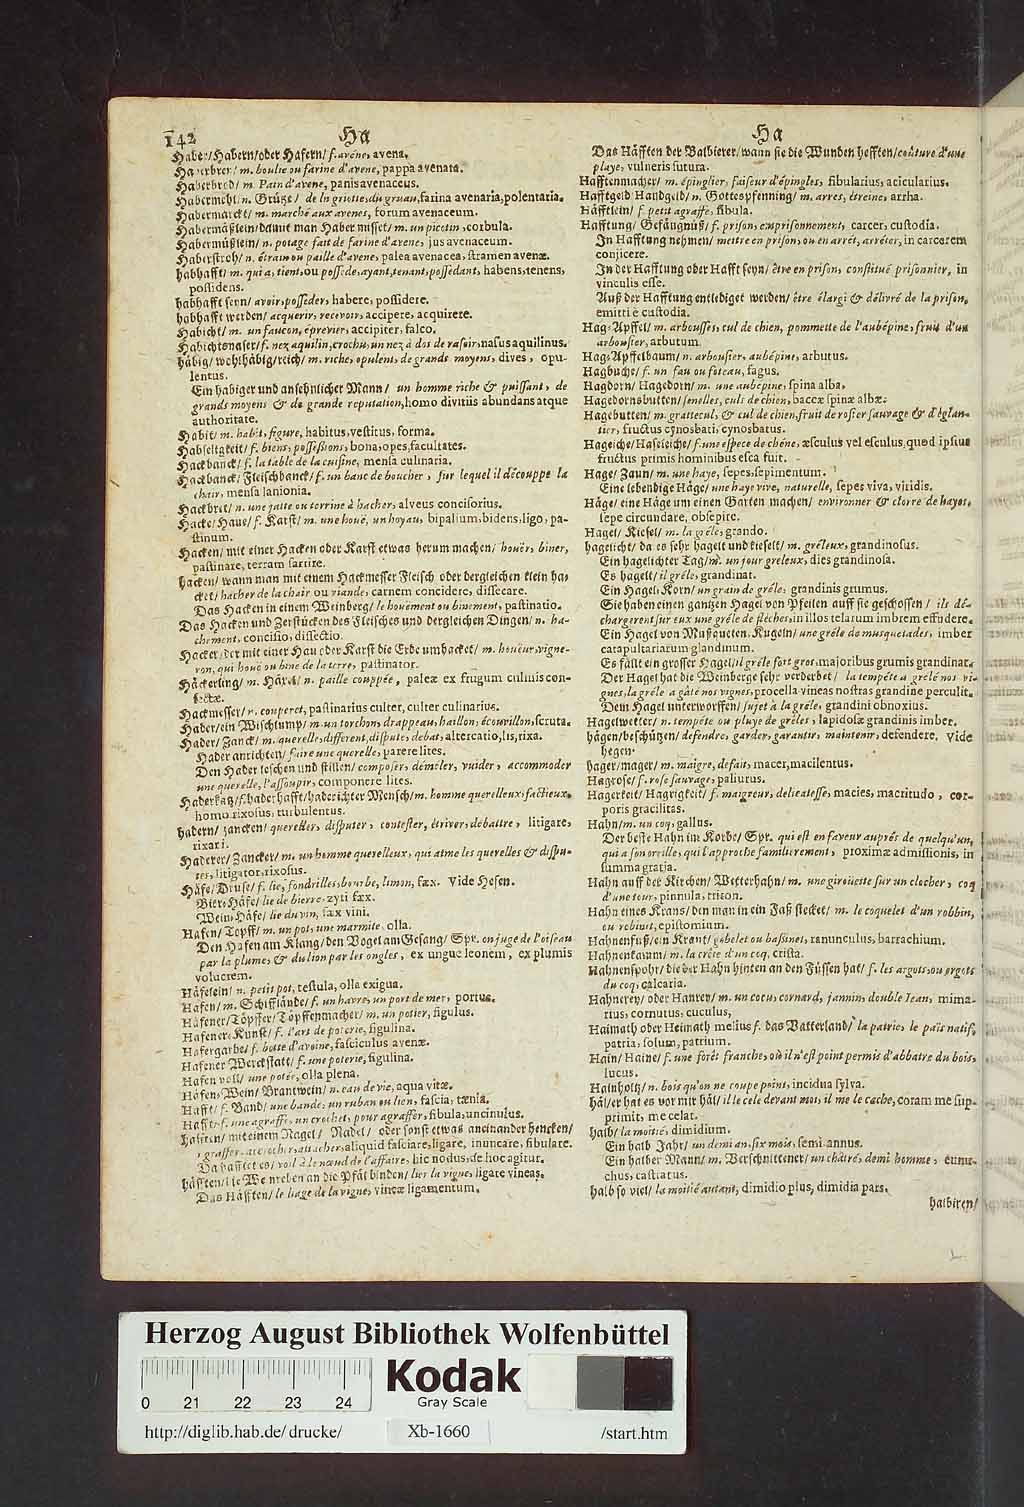 142 Ha
Haber/Habern/oder Hafern/ f. avéne, avena.
Haberbrey/ m. boulie ou farine d'avene, pappa avenata.
Haberbrod/ m. Pain d'avene, panis avenaceus.
Habermehl/ n. Grütze/ de la griotte, du gruau, farina avenaria, polentaria.
Habermarckt/ m. marché aux avenes, forum avenaceum.
Habermäßlein/damit man Haber misset/ m. un picotin, corbula.
Habermüßlein/ n. potage fait de farine d'avene, jus avenaceum.
Haberstroh/ n. étrain ou paille d'avene, palea avenacea, stramen avenæ.
habhafft/ m. qui a, tient, ou possede, ayant, tenant, possedant, habens, tenens,
possidens.
habhafft seyn/ avoir, posseder, habere, possidere.
habhafft werden/ acquerir, recevoir, accipere, acquirere.
Habicht/ m. un faucon, éprevier, accipiter, falco.
Habichtsnaser/ f. nez aquilin, crochu, un nez à dos de rasoir, nasus aquilinus.
häbig/ wohlhäbig/reich/ m. riche, opulent, de grands moyens, dives, opu-
lentus.
Ein habiger und ansehnlicher Mann/ un homme riche & puissant, de
grands moyens & de grande reputation, homo divitiis abundans atque
authoritate.
Habit/ m. habit, figure, habitus, vestitus, forma.
Habseligkeit/ f. biens, possessions, bona, opes, facultates.
Hackbanck/ f. la table de la cuisine, mensa culinaria.
Hackbanck/Fleischbanck/ f. un banc de boucher, sur lequel il découppe la
chair, mensa lanionia.
Hackbret/ n. une jatte ou terrine à hacher, alveus concisorius.
Hacke/Haue/ f. Karst/ m. une houë, un hoyau, bipalium, bidens, ligo, pa-
stinum.
Hacken/ mit einer Hacken oder Karst etwas herum machen/ houër, biner,
pastinare, terram sarrire.
hacken/ wann man mit einem Hackmesser Fleisch oder dergleichen klein ha-
cket/ hacher de la chair ou viande, carnem concidere, dissecare.
Das Hacken in einem Weinberg/ le houëment ou binement, pastinatio.
Das Hacken und Zerstücken des Fleisches und dergleichen Dingen/ n. ha-
chement, concisio, dissectio.
Hacker/der mit einer Hau oder Karst die Erde umhacket/ m. houëur, vigne-
ron, qui houë ou bine de la terre, pastinator.
Häckerling/ m. n. paille couppée, paleæ ex frugum culmis con-
sectæ.
Hackmesser/ n. couperet, pastinarius culter, culter culinarius.
Hader/ein Wischlump/ m. un torchon, drappeau, haillon, écourillon, scruta.
Hader/ Zanck/ m. querelle, different, dispute, debat, altercatio, lis, rixa.
Hader anrichten/ faire une querelle, parere lites.
Den Hader leschen und stillen/ composer, démeler, vuider, accommoder
une querelle, l'assoupir, componere lites.
Haderkatz/ f. haderhafft/haderichter Mensch/ m. homme querelleux, factieux,
homo rixosus, turbulentus.
hadern/ zancken/ quereller, disputer, contester, étriver, débattre, litigare,
rixari.
Haderer/ Zancker/ m. un homme querelleux, qui atme les querelles & dispu-
tes, litigator, rixosus.
Häfe/Druse/ f. lie, fondrilles, bourbe, limon, fæx. Vide Hefen.
Bier-Häfe/ lie de bierre, zyti fæx.
Wein-Häfe/ lie du vin, fæx vini.
Hafen/ Topff/ m. un pot, une marmite, olla.
Den Hafen am Klang/ den Vogel am Gesang/ Spr. on juge de l'oiseau
par la plume, & du lion par les ongles, ex ungue leonem, ex plumis
volucrem.
Häfelein/ n. petit pot, testula, olla exigua.
Hafen/ m. Schifflände/ f. un havre, un port de mer, portus.
Hafener/Töpffer/Töpffenmacher/ m. un potier, figulus.
Hafener-Kunst/ f. l'art de poterie, figulina.
Hafergarbe/ f. botte d'avoine, fasciculus avenæ.
Hafener Werckstatt/ f. une poterie, figulina.
Hafen voll/ une potée, olla plena.
Höfen-Wein/ Brantwein/ n. eau de vie, aqua vitæ.
Hafft/ f. Band/ une bande, un ruban ou lien, fascia, tænia.
Hafft/ f. une agraffe, un crochet, pour agraffer, fibula, uncinulus.
hafften/ mit einem Nagel/ Nadel/ oder sonst etwas aneinander hencken/
agraffer, accrocher, attacher, aliquid fasciare, ligare, inuncare, fibulare.
Da hafftet es/ voil à le nœud de l'affaire, hic nodus, de hoc agitur.
häfften/ die Weinreben an die Pfäl binden/ lier la vigne, ligare vineas.
Das Häfften/ le liage de la vigne, vineæ ligamentum.
Ha
Das Häfften der Balbierer/ wann sie die Wunden hefften/ coûture d'une
playe, vulneris sutura.
Hafftenmacher/ m. épinglier, faiseur d'épingles, fibularius, acicularius.
Hafftgeld Handgeld/ n. Gottespfenning/ m. arres, étreine, arrha.
Häfftlein/ f petit agraffe, fibula.
Hafftung/ Gefängnüß/ f. prison, emprisonnement, carcer, custodia.
In Hafftung nehmen/ mettre en prison, ou en arrét, arréter, in carcerem
conjicere.
In der Hafftung oder Hafft seyn/ étre en prison, constitué prisonnier, in
vinculis esse.
Auß der Hafftung entlediget werden/ étre élargi & délivré de la prison,
emitti e custodia.
Hag-Apffel/ m. arbousses, cul de chien, pommette de l'aubépine, fruit d'un
arbousier, arbutum.
Hag-Apffelbaum/ n. arbousier, aubépine, arbutus.
Hagbuche/ f. un fau ou foteau, fagus.
Hagdorn/ Hagedorn/ m. une aubépine, spina alba.
Hagedornsbutten/ senelles, culs de chien, baccæ spinæ albæ.
Hagebutten/ m. grattecul, & cul de chien, fruit de rosier sauvage & d'églan-
tier, fructus cynosbati, cynosbatus.
Hageiche/ Haseleiche/ f. une espece de chêne, æsculus vel esculus, quod ipsius
fructus primis hominibus esca fuit.
Hage/ Zaun/ m. une haye, sepes, sepimentum.
Eine lebendige Häge/ une haye vive, naturelle, sepes viva, viridis.
Häge/ eine Häge um einen Garten machen/ environner & clorre de hayes,
sepe circundare, obsepire.
Hagel/ Kiesel/ m. la gréle, grando.
hagelicht/ da es sehr hagelt und kieselt/ m. gréleux, grandinosus.
Ein hagelichter Tag/ m. un jour greleux, dies grandinosa.
Es hagelt/ il gréle, grandinat.
Ein Hagel-Korn/ un grain de gréle, grandinis grumus.
Sie haben einen gantzen Hagel von Pfeilen auff sie geschossen/ ils dé-
chargerent sur eux une gréle de fléches, in illos telarum imbrem effudere.
Ein Hagel von Mußqueten-Kugeln/ une gréle de musquetades, imber
catapultariarum glandinum.
Es fällt ein grosser Hagel/ il gréle fort gros, majoribus grumis grandinat.
Der Hagel hat die Weinberge sehr verderbet/ la tempéte a grélé nos vi-
gnes, la gréle a gâté nos vignes, procella vineas nostras grandine perculit.
Dem Hagel unterworffen/ sujet à la gréle, grandini obnoxius.
Hagelwetter/ n. tempéte ou pluye de gréles, lapidosæ grandinis imber.
hägen/beschützen/ defendre, garder, garantir, maintenir, defendere. Vide
hegen.
hager/mager/ m. maigre, defait, macer, macilentus.
Hagrose/ f. rose sauvage, paliurus.
Hagerkeit/ Hagrigkeit/ f. maigreur, delicatesse, macies, macritudo, cor-
poris gracilitas.
Hahn/ m. un coq, gallus.
Der beste Hahn im Korbe/ Spr. qui est en faveur auprés de quelqu'un,
qui a son oreille, qui l'approche familierement, proximæ admissionis, in
summa gratia.
Hahn auff der Kirchen/ Wetterhahn/ m. une girouëtte sur un clocher, coq
d'une tour, pinnula, triton.
Hahn eines Krans/ den man in ein Faß stecket/ m. le coquelet d'un robbin,
ou robinet, epistomium.
Hahnenfuß/ein Kraut/ gobelet ou bassinet, ranunculus, barrachium.
Hahnenkamm/ m. la créte d'un coq, crista.
Hahnensporn/ die der Hahn hinten an den Füssen hat/ f. les argots, ou ergots
du coq, calcaria.
Hahnerey/ oder Hanrey/ m. un cocu, cornard, jannin, double Iean, mima-
rius, cornutus, cuculus,
Haimath oder Heimath melius f. das Vatterland/ la patrie, le païs natif,
patria, solum, patrium.
Hain/ Haine/ f. une forét franche, où il n'est point permis d'abbatre du bois,
lucus.
Hainholtz/ n. bois qu'on ne coupe point, incidua sylva.
häl/er hat es vor mir häl/ il le cele devant moi, il me le cache, coram me sup-
primit, me celat.
halb/ la moitié, dimidium.
Ein halb Jahr/ un demi an, six mois, semi annus.
Ein halber Mann/ m. Verschnittener/ un châtré, demi homme, eunu-
chus, castratus.
halb so viel/ la moitié autant, dimidio plus, dimidia pars.
halbiren/
Herzog August Bibliothek Wolfenbüttel
Kodak
Gray Scale
0 21 22 23 24
http://diglib.hab.de/drucke/ Xb-1660 /start.htm